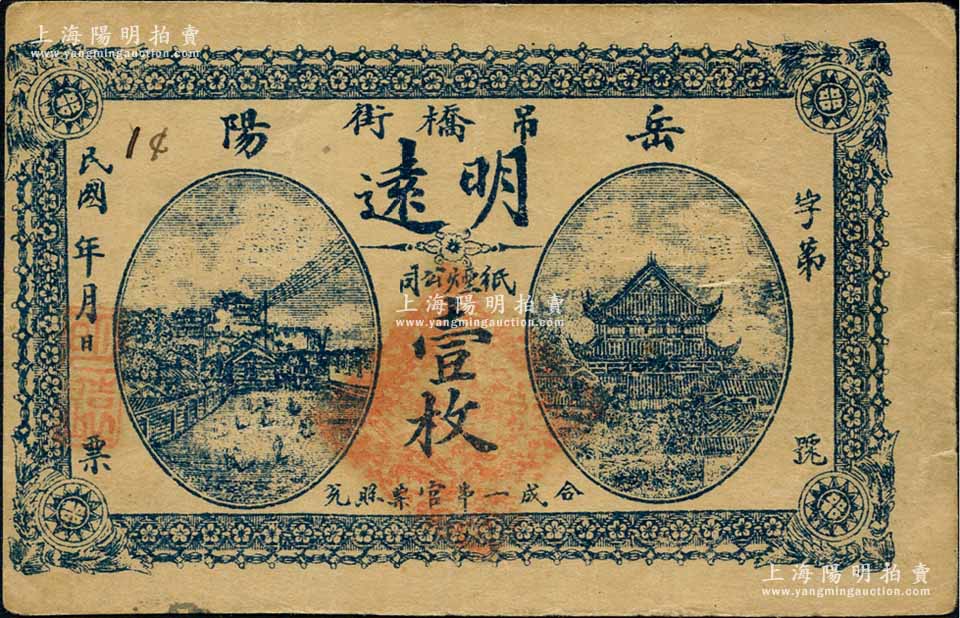 上海陽明拍賣
www.yangmingauction.com
上海陽明拍賣
www.yangmingauction.com
岳 吊橋街 陽
明遠
紙煙公司
壹枚
合成一串官票照兌
字第 號
民國 年 月 日 票
1¢
上海陽明拍賣
www.yangmingauction.com
上海陽明拍賣
www.yangmingauction.com